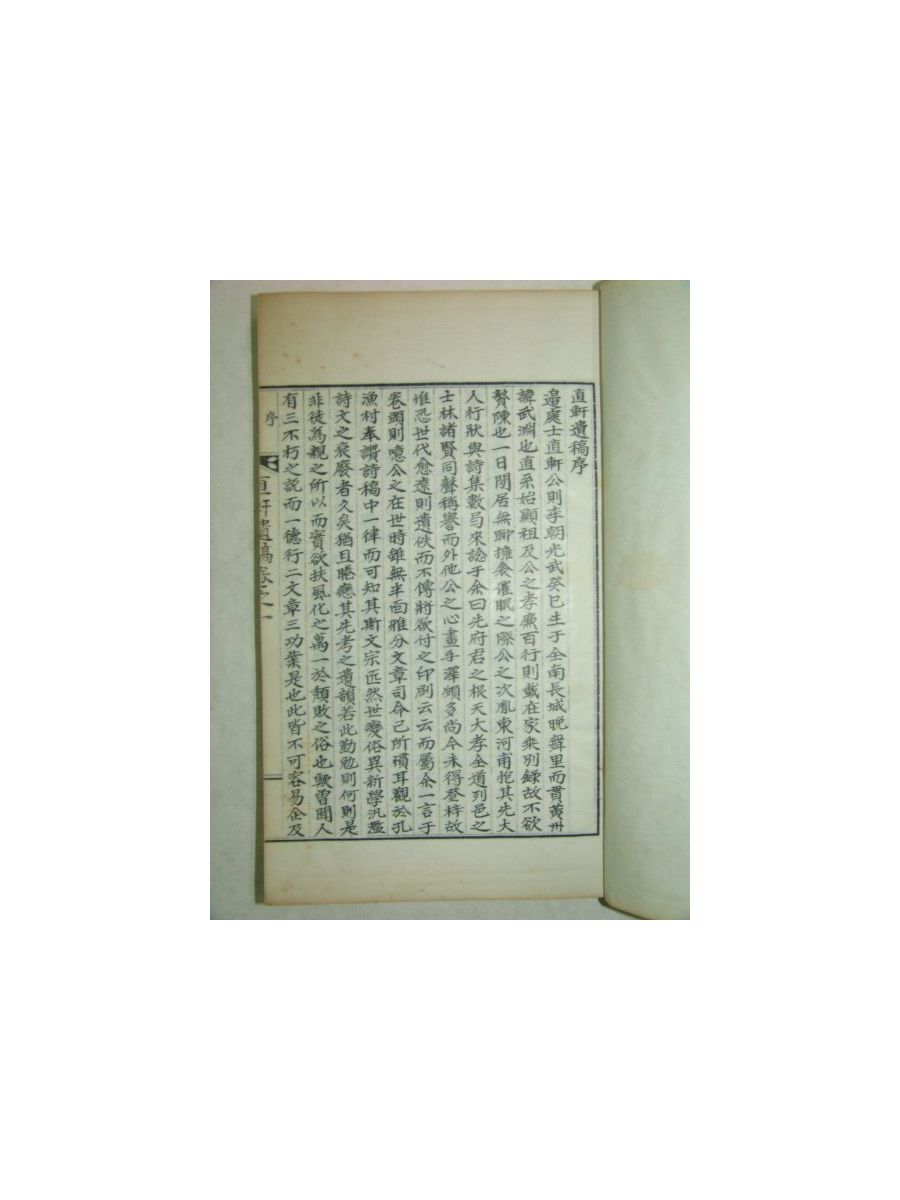 直軒遺稿序
邉處士直軒公則李朝光武癸巳生于全南長城晩舞里而貫黄州
諱武淵也直系始顯祖及公之孝廉百行則載在家乘別錄故不欲
贅陳也一日閒居無聊擁衾催眠之際公之次胤東河甫抱其先大
人行狀與詩集數局來諗于余曰先府君之根天大孝全道列邑之
士林諸賢同聲稱譽而外他公之心畫手澤頗多尚今未得登梓故
惟恐世代愈遠則遺佚而不傳將欲付之印刷云云而屬余一言于
卷頭則噫公之在世時雖無半面雅分文章司命已所慣耳觀於孔
漁村奉讚詩稿中一律而可知其斯文宗匠然世變俗異新學汎濫
詩文之衰廢者久矣猶且睠戀其先考之遺韻若此勤勉則何則是
非徒爲親之所以而實欲扶風化之萬一於頹敗之俗也歟曾聞人
有三不朽之説而一德行二文章三功業是也此皆不可容易企及
序
直軒遺稿卷之一